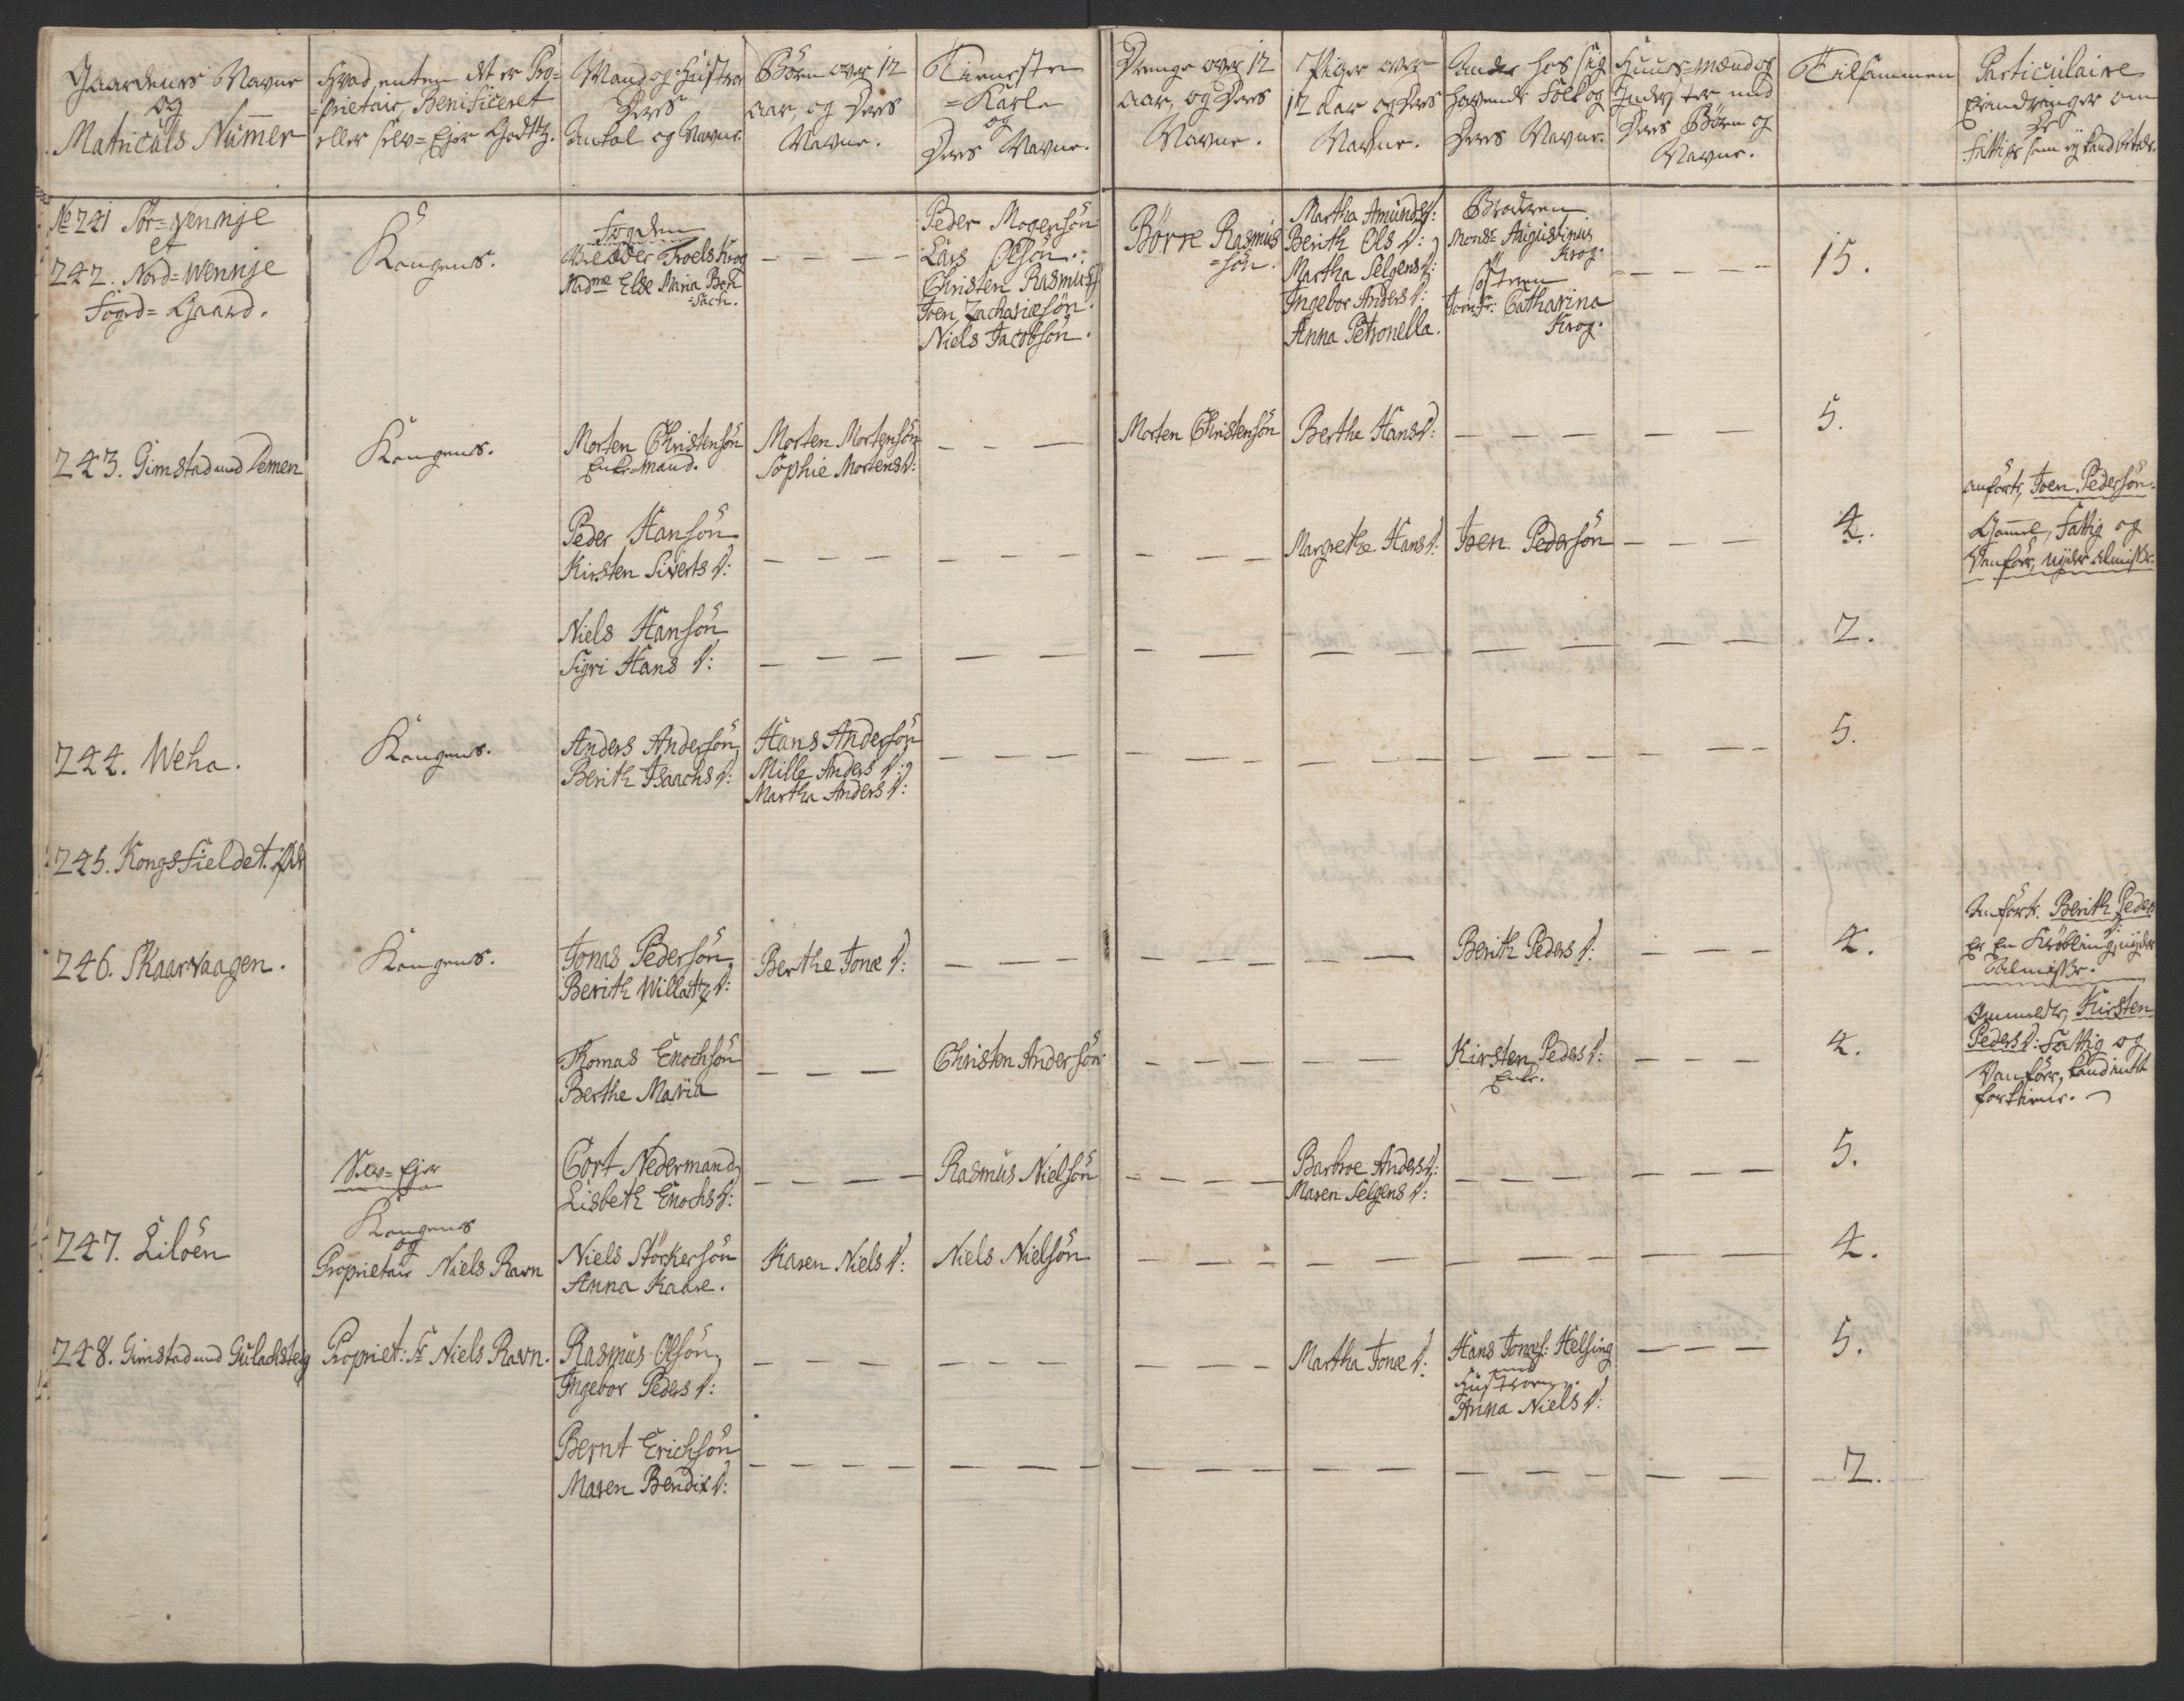 Gaardenes Navne
og
Matriculs Nummer
Hvad enten det er Pro=
=prietair, Benificeret
eller selv=Ejer Godtz.
Mand og Hustrue
Deres
Antal og Navne.
Börn over 12
aar, og Deres
Navne.
Tieneste
=Karle
og
Deres Navne.
Drenge over 12
aar, og Deres
Navne.
Piger over
12 aar og Deres
Navne.
Andre hos sig
havende Folk og
Deres Navne.
Huus=Mænd og
Inderster med
Deres Börn og
Navne.
Tilsammen
Particulaire
Erindringer om
De
Fattige som ej kand betale.
No 241 Sör=Wennje
et
242. Nord=Wennje
Fogd=Gaard.
Kongens.
Fogden
Troels Krog
Madme Else Maria Bern
=sach.
Peder Mogensön
Lars Olsön.
Christen Rasmus
Joen Zachariæsön.
Niels Jacobsön.
Börre Rasmus
=sön.
Martha Amunds d:
Berith Ols d:
Martha Selgens d:
Ingebor Anders d:
Anna Petronella.
Broderen
Monsr Augustinus
Krog.
Söstren
Jomfr: Catharina
Krog.
15.
243. Gimstad und Demen
Kongens.
Morten Christensön
Enke=Mand.
Morten Mortensön
Sophie Mortens d:
Morten Christensön
Berthe Hans d:
5.
Peder Hansön
Kirsten Siverts d:
Margrethe Hans d:
Joen Pedersön
4.
anförte, Joen Pedersön.
Gammel, Fattig og
Vanför, nyder almisse.
Niels Hansön
Sigri Hans d:
2.
244. Weha.
Kongens.
Anders Andersön
Berith Isaachs d:
Hans Andersön
Mille Anders d:
Martha Anders d:
5.
245. Kongsfieldet. Öde
246. Skaarvaagen.
Kongens.
Jonas Pedersön,
Berith Willatz d:
Berthe Jonæ d:
Berith Peders d:
4.
Anförte. Berith Peders
d:
Er En Kröbling, nyder
Almisse.
Thomas Enochsön
Berthe Maria
Christen Andersön
Kirsten Peders d:
Enke.
4.
Anmeldte, Kirsten
Peders d: Fattig og
Vanför, kand intet
fortiene.
Selv=Ejer
Cort Nedermand
Lisbeth Enochs d:
Rasmus Nielsön
Barbroe Anders d:
Maren Selgens d:
5.
247. Liloën
Kongens
og
Proprietair Niels Ravn
Niels Störkersön
Anna Kaare.
Karen Niels d:
Niels Nielsön
4.
248. Gimstad und Gulachsteig
Propriet: Sr Niels Ravn.
Rasmus Olsön,
Ingebor Peders d:
Martha Jonæ d:
Hans Jonæs: Helsing
med
Hustroe.
Anna Niels d:
5.
Bernt Erichsön
Maren Bendix d:
2.